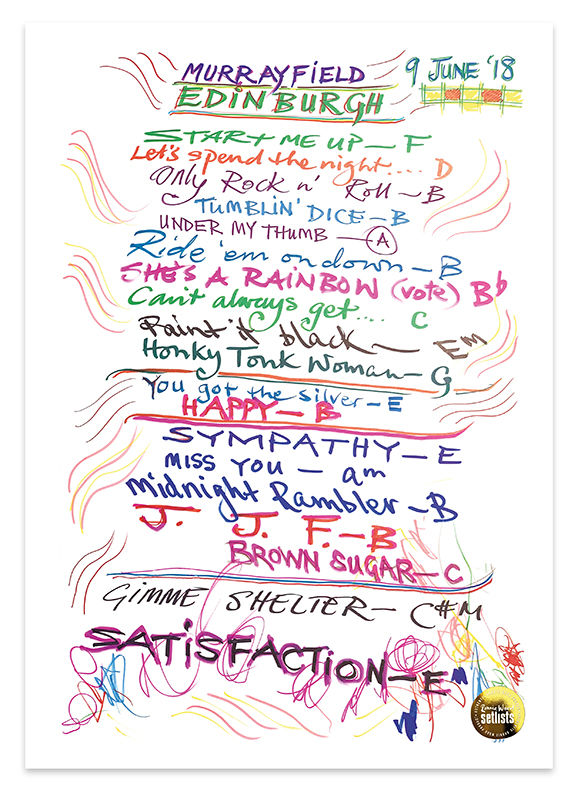 MURRAYFIELD 9 JUNE '18
EDINBURGH
START ME UP – F
Let's spend the night.... D
Only Rock n' Roll – B
TUMBLIN' DICE – B
UNDER MY THUMB — A
Ride 'em on down – B
SHE'S A RAINBOW (vote) Bb
Can't always get.... C
Paint it black — Em
Honky Tonk Woman – G
You got the silver – E
HAPPY – B
SYMPATHY – E
MISS YOU – am
midnight Rambler – B
J. J. F. – B
BROWN SUGAR – C
GIMME SHELTER – C#M
SATISFACTION – E
Ronnie Wood
setlists